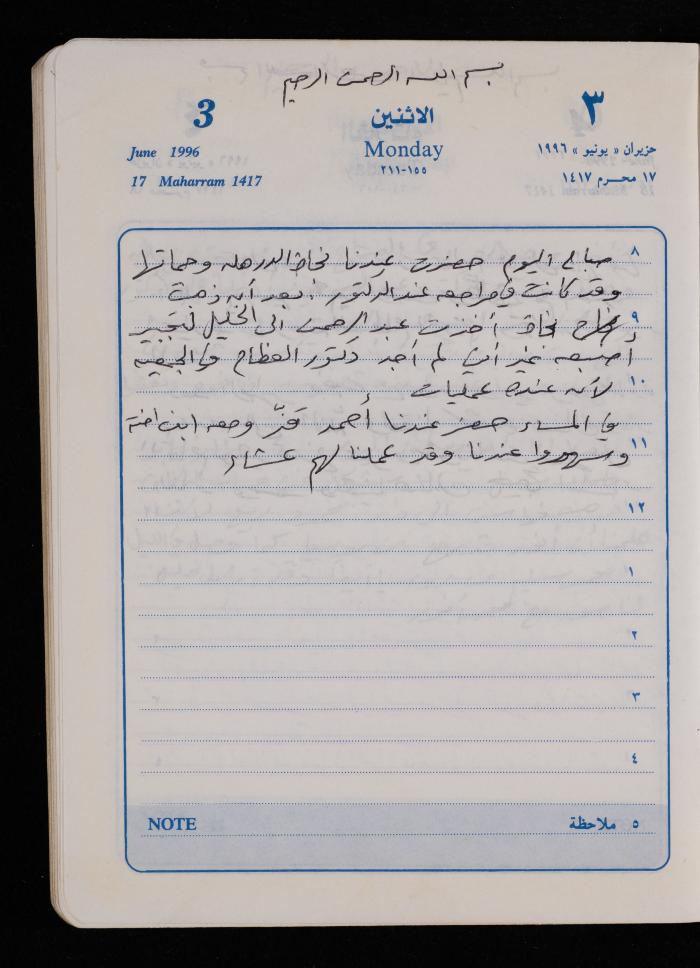 بسم الله الرحمن الرحيم
3 الاثنين ٣
June 1996 Monday حزيران « يونيو » ١٩٩٦
17 Maharram 1417 ١٥٥-٢١١ ١٧ محرم ١٤١٧
٨ صباح اليوم حضرت عندنا نجاح وحماتها
وقد كانت في مراجعه عند الدكتور . بعد أن ذهبت
٩ نجاح أخذت عبد الرحمن الى الخليل لتجبير
أصبعه غير أني لم أجد دكتور العظام في الجمعيه
١٠ لأنه عنده عمليات
في المساء حضر عندنا أحمد قزّ ومعه ابن اخته
١١ وسهروا عندنا وقد عملنا لهم عشاء
١٢
١
٢
٣
٤
NOTE ٥ ملاحظة